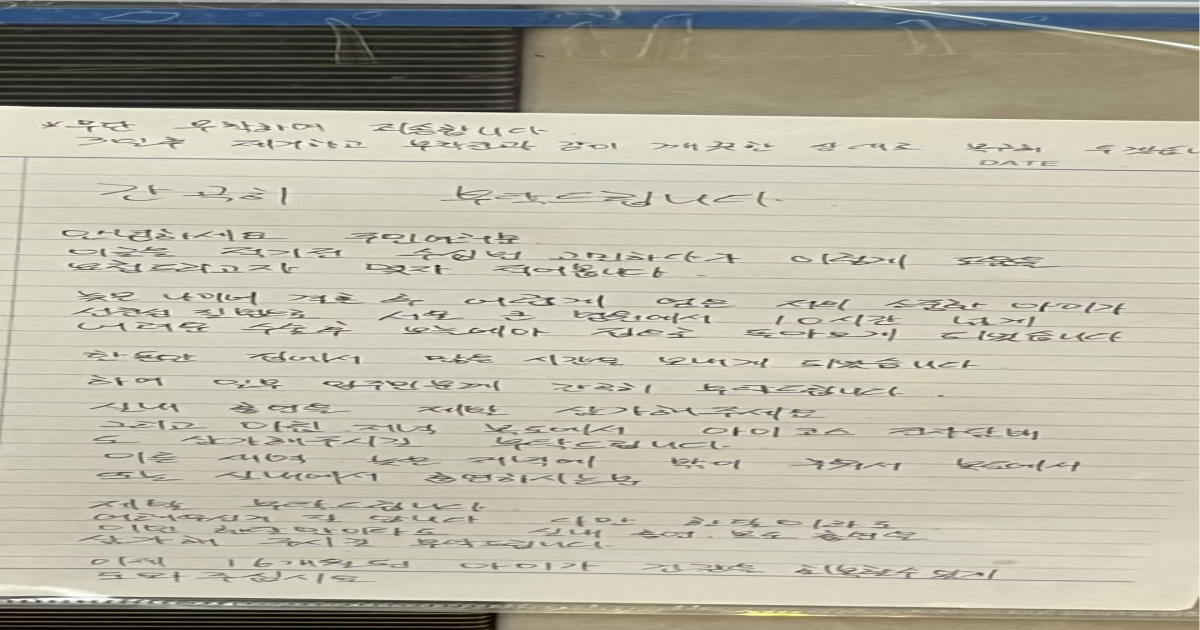 *무단 부착하여 죄송합니다
3일후 제거하고 부착전과 같이 깨끗한 상태로
DATE
간곡히 부탁드립니다.
안녕하세요 주민여러분
이글을 적기전 수십번 고민하다가 이렇게 도움을
요청드리고자 몇자 적어봅니다.
늦은 나이에 결혼 후 어렵게 얻은 저의 소중한 아이가
선천성 질환으로 서울 큰 병원에서 10시간 넘게
어려운 수술후 오늘에야 집으로 돌아오게 되었습니다
한동안 집에서 많은 시간을 보내게 되었습니다
하여 일부 입주민분께 간곡히 부탁드립니다.
실내 흡연을 제발 삼가해주세요
그리고 아침 저녁 보도에서 아이코스 전자담배
도 삼가해주시길 부탁드립니다.
이른 새벽 늦은 저녁에 밖이 추워서 보도에서
또는 실내에서 흡연하시는분
제발 부탁드립니다
어려우신거 잘 압니다 다만 한달이라도
이번 한달만이라도 실내 흡연. 보도 흡연을
삼가해 주시길 부탁드립니다.
이제 16개월된 아이가 건강을 회복할수 있게
도와주십시요